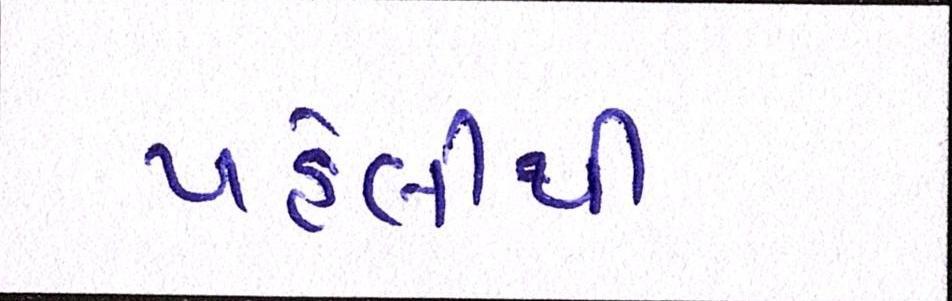 પહેલીથી